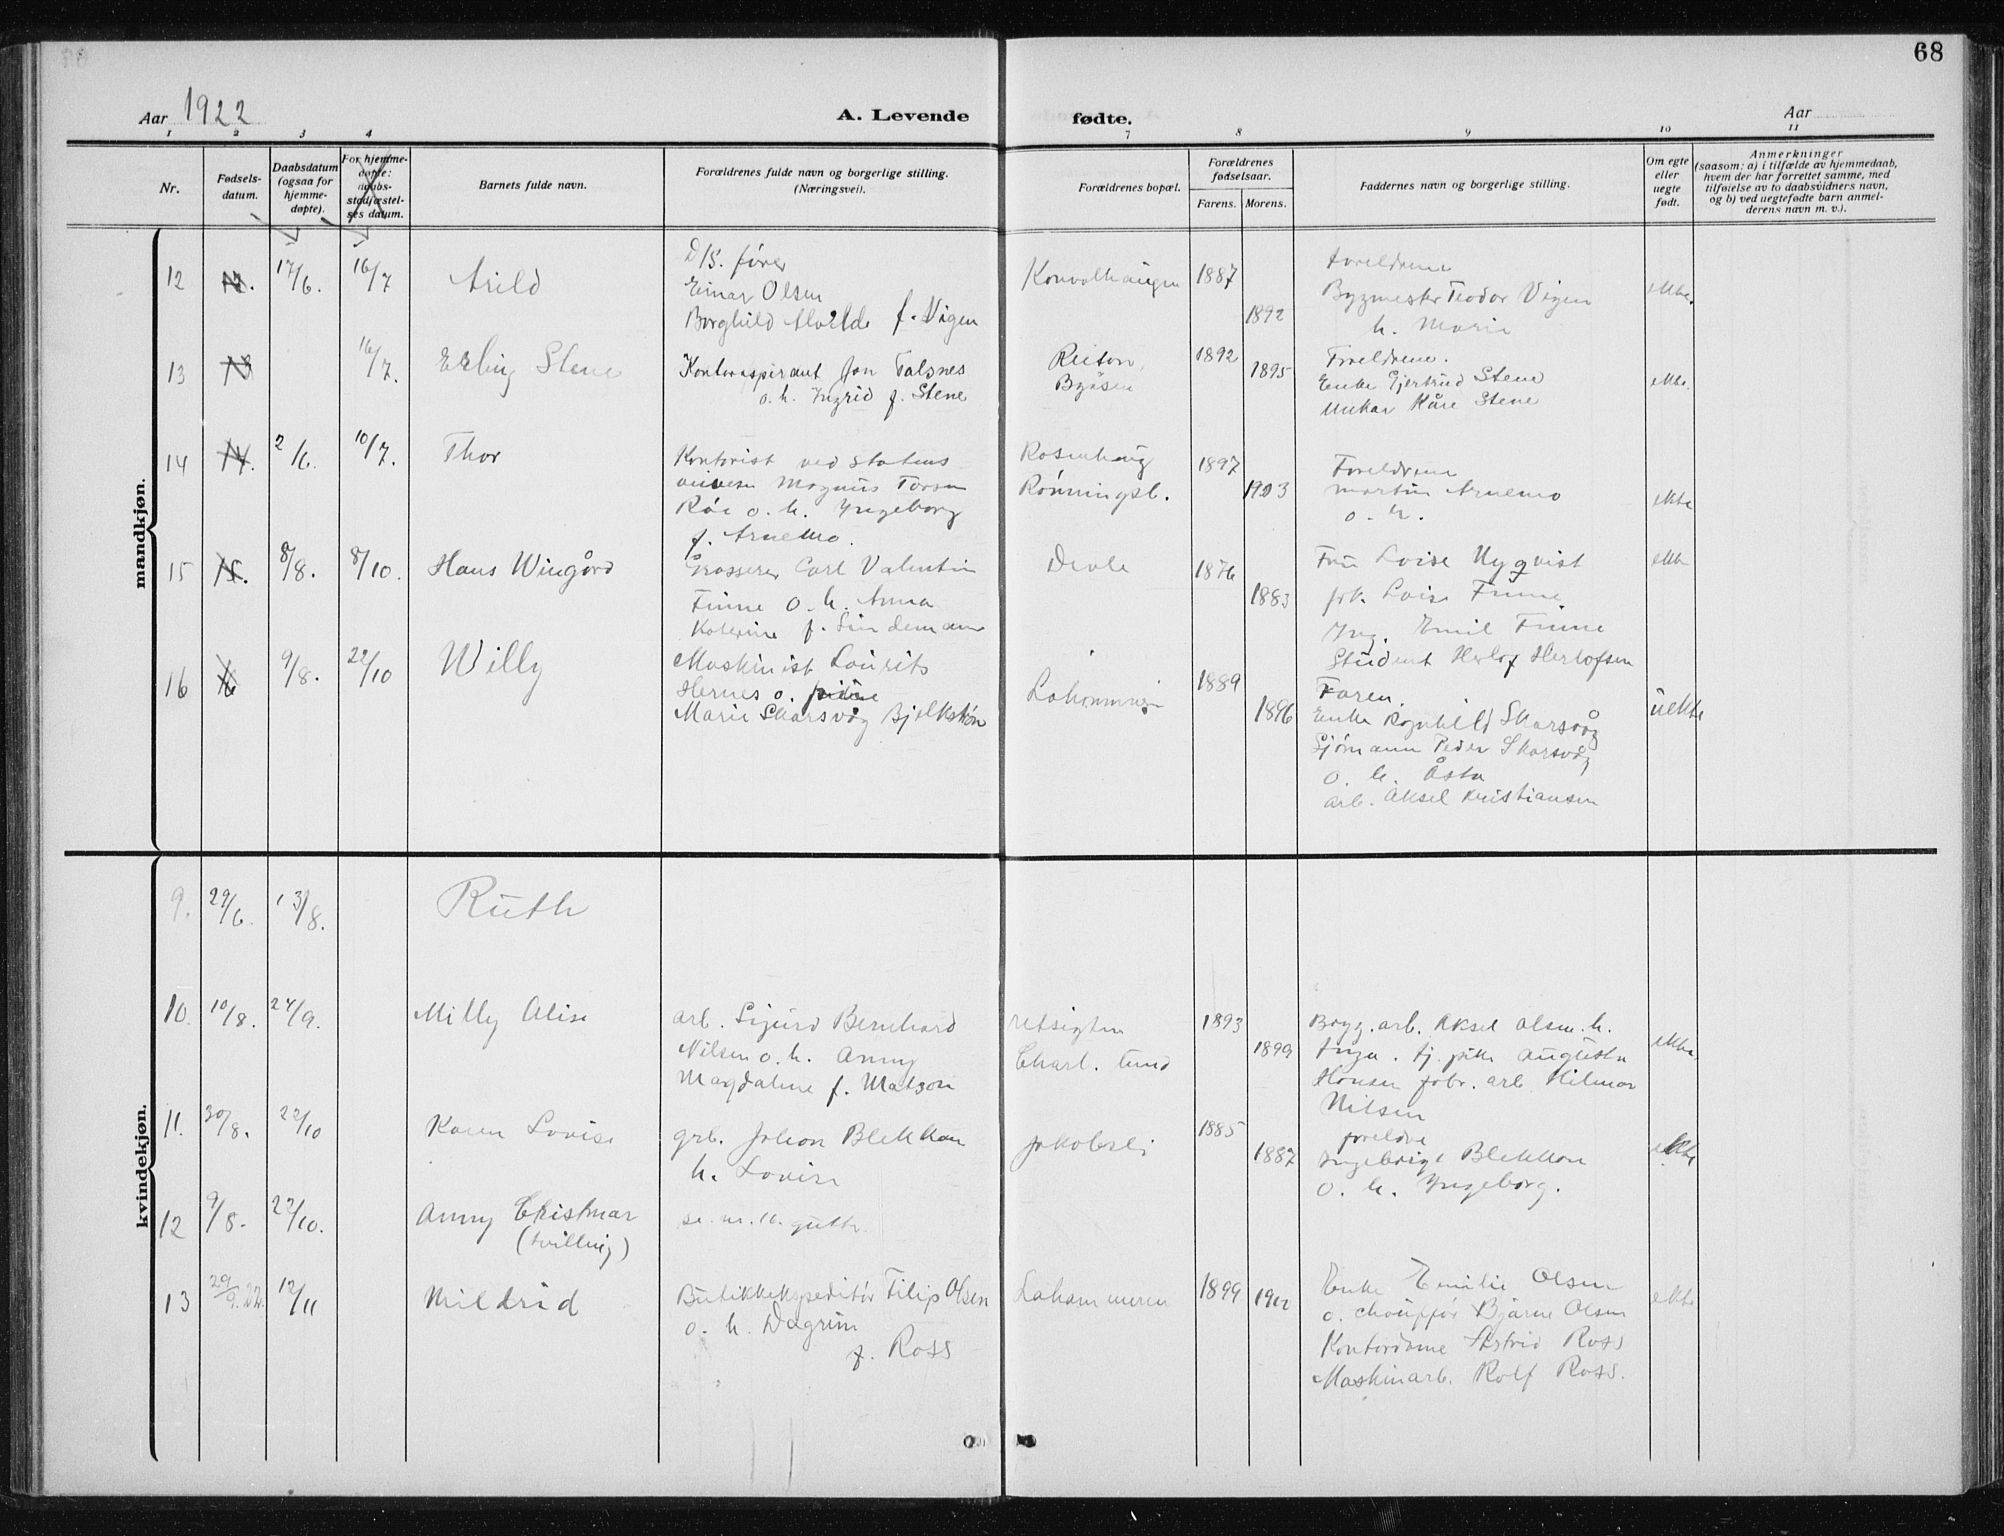 68
Aar 1922
A. Levende fødte.
Aar
1 2 3 4 7 8 9 10 11
Nr.
Fødsels-
datum.
Daabsdatum
(ogsaa for
hjemme-
døpte).
For hjemme-
døpte:
daabs-
stadfæstel-
ses datum.
Barnets fulde navn.
Forældrenes fulde navn og borgerlige stilling.
(Næringsvei).
Forældrenes bopæl.
Forældrenes
fødselsaar.
Farens. Morens.
Faddernes navn og borgerlige stilling.
Om egte
eller
uegte
født.
Anmerkninger
(saasom: a) i tilfælde av hjemmedaab,
hvem der har forrettet samme, med
tilføielse av to daabsvidners navn,
og b) ved uegtefødte barn anmel-
derens navn m. v.).
mandkjøn.
12 12. 17/6. 16/7 Arild
D/S. fører
Einar Olsen
Borghild Alvilde f. Vigen
Konvalhaugen
1887
1892
Foreldrene
Bygmester Teodor Vigen
h. Marie
ekte.
13 13 16/7. Erling Stene
Kontoraspirant Jon Talsnes
o. h. Ingrid f. Stene
Byåsen
1892
1895
Foreldrene.
Enke Gjertrud Stene
Kåre Stene
ekte.
14 14. 2/6. 10/7. Thor
Kontorist ved statens
Magnus
o. h. Yngeborg
f. Arnemo.
Rosenhaug
Rønningsl.
1897
1903
Foreldrene
Martin Arnemo
o. h.
ekte
15 15. 8/8. 8/10. Hans Wingård
Grosserer Carl Valentin
Finne o. h. Anna
Katerine f. Lindemann
Devle
1876
1883
Fru Loise Nyqvist
frk. Loise Finne
Yng. Emil Finne
Student Herlof Herlofsen
ekte
16 16 9/8. 22/10 Willy
Maskinist Laurits
Hernes o. pike
Marie Skarsvåg Bjelkstrøn
1889
1896
Faren.
Enke Ragnhild Skarsvåg
Sjømann Peder Skarsvåg
o. h. Åsta
arb. Aksel Kristiansen
uekte
kvindekjøn.
9. 29/6. 13/8. Ruth
10. 10/8. 24/9. Milly Alise
arb. Sigurd Bernhard
Nilsen o. h. Anny
Magdaline f. Matson
Utsigten
Charl. lund
1893
1899
Bryg. arb. Aksel Olsen. h.
Inga. tj. pike Augusta
Hansen fabr. arb Hilmar
Nilsen
ekte
11. 30/8. 22/10 Karen Lovise
grb. Johan Blekkan
h. Lovise
Jakobsli
1885
1887
foreldre
Ingebrigt Blekkan
o. h. Yngeborg.
ekte
12 9/8. 22/10. Anny
(tvilling)
se. nr. 16. gutter
13 29/9.22. 12/11 Mildrid
Butikkekspeditør Filip Olsen
o. h. Dagrun
f. Ross
Lahammeren
1899
Enke Emilie Olsen
o. chauffør Bjarne Olsen
Kontordame Astrid Ross
Maskinarb. Rolf Ross.
ekte